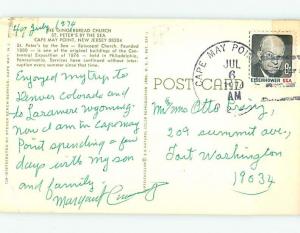 July, 1974
THE GINGERBREAD CHURCH
ST. PETER'S BY THE SEA
CAPE MAY POINT, NEW JERSEY 08204
St. Peter's by the Sea — Episcopal Church. Founded
1880 — is one of the original buildings of the Cen-
tennial Exposition of 1876 — held in Philadelphia,
Pennsylvania. Services have continued without inter-
Enjoyed my trip to
Denver Colorado and
to Laramere Wyoming
Now I am in Cape May
Point spending a few
days with my son
and family.
Margaret
POSTCARD
CAPE MAY POINT
JUL
6
AM
EISENHOWER USA
Mr/Mrs Otto
209 Summit ave.,
Fort Washington
19034